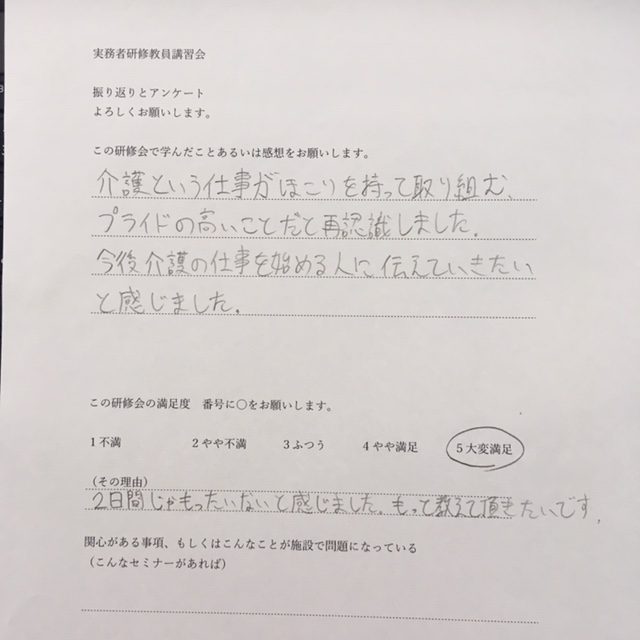 実務者研修教員講習会
振り返りとアンケート
よろしくお願いします。
この研修会で学んだことあるいは感想をお願いします。
介護という仕事がほこりを持って取り組む、
プライドの高いことだと再認識しました。
今後介護の仕事を始める人に伝えていきたい
と感じました。
この研修会の満足度　番号に○をお願いします。
1 不満　2 やや不満　3 ふつう　4 やや満足　5 大変満足
（その理由）
2日間じゃもったいないと感じました。もっと教えて頂きたいです。
関心がある事項、もしくはこんなことが施設で問題になっている
（こんなセミナーがあれば）